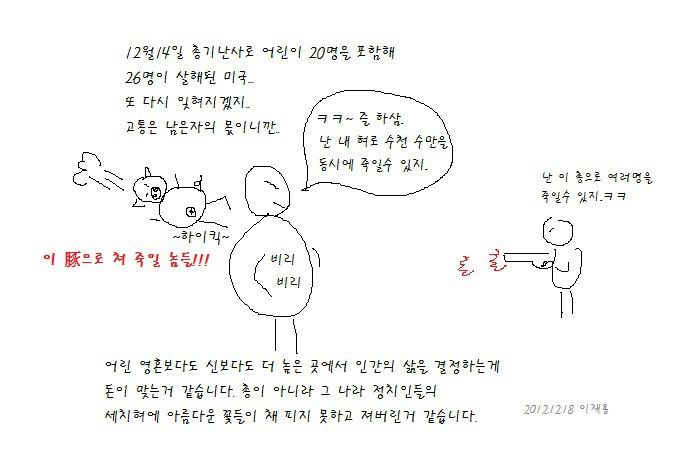 12월14일 총기난사로 어린이 20명을 포함해
26명이 살해된 미국...
또 다시 잊혀지겠지..
고통은 남은자의 몫이니깐..
ㅋㅋ~ 즐 하삼.
난 내 혀로 수천 수만을
동시에 죽일수 있지.
난 이 총으로 여러명을
죽일수 있지.ㅋㅋ
~하이킥~
이 豚으로 쳐 죽일 놈들!!!
비리
비리
어린 영혼보다도 신보다도 더 높은 곳에서 인간의 삶을 결정하는게
돈이 맞는거 같습니다. 총이 아니라 그 나라 정치인들의
세치혀에 아름다운 꽃들이 채 피지 못하고 져버린거 같습니다.
2012.12.18 이재용